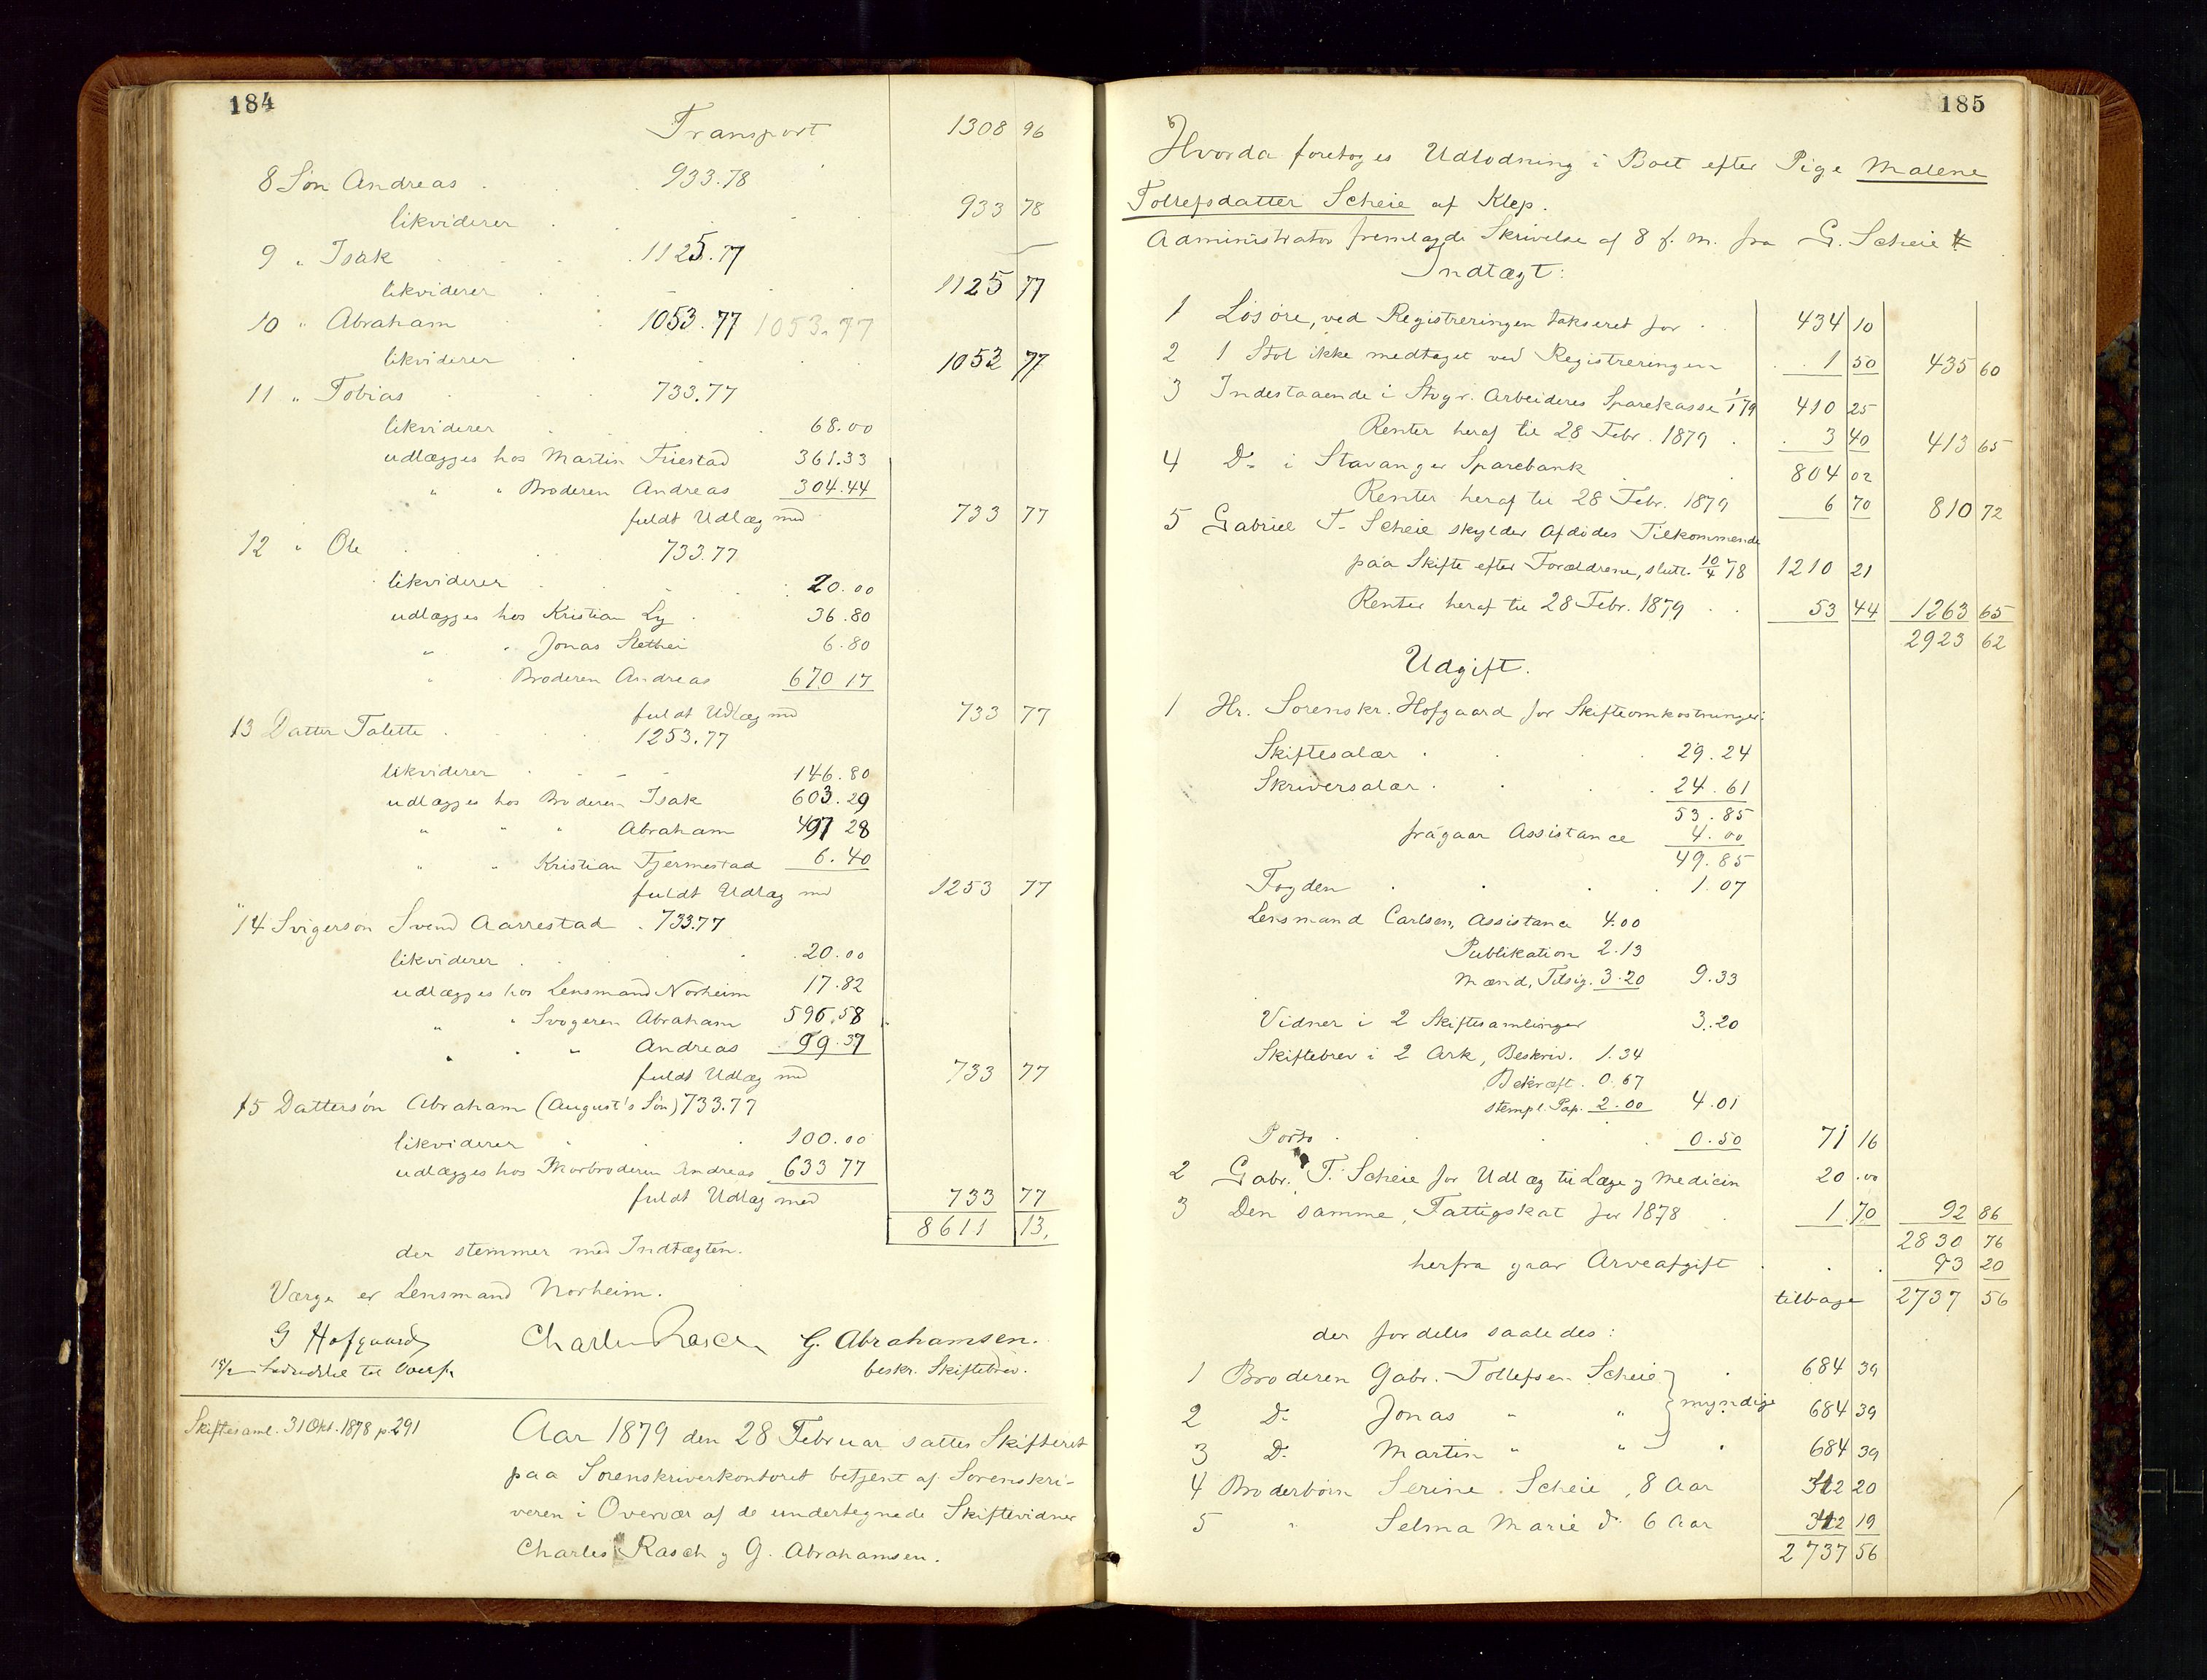 184
Transport 1308 96
8 Søn Andreas . 933.78
likviderer 933 78
9 „ Isak 1125.77
likviderer 1125 77
10 „ Abraham 1053.77 1053.77
likviderer 1053 77
11 „ Tobias 733.77
likviderer 68.00
udlægges hos Martin Friestad 361.33
„ „ Broderen Andreas 304.44
fuldt Udlæg med 733 77
12 „ Ole 733.77
likviderer 20.00
udlægges hos Kristian Ly 36.80
„ „ Jonas 6.80
„ Broderen Andreas 670 17
fuldt Udlæg med 733 77
13 Datter Talette 1253.77
likviderer 146.80
udlægges hos Broderen Isak 603.29
„ „ „ Abraham 497 28
„ „ Kristian Tjermestad 6.40
fuldt Udlæg med 1253 77
14 Svigersøn Svend Aarrestad . 733.77
likviderer 20.00
udlægges hos Lensmand Norheim 17.82
„ „ Svogeren Abraham 596.58
„ „ „ Andreas 99.37
fuldt Udlæg med 733 77
15 Dattersøn Abraham (August's Søn) 733.77
likviderer 100.00
udlægges hos Morbroderen Andreas 633 77
fuldt Udlæg med 733 77
8611 13.
der stemmer med Indtægten.
Værge er Lensmand Norheim.
G Hofgaard Charles Rasch G. Abrahamsen.
beskr. Skiftebrev.
Skiftesaml. 31 Okt. 1878 p. 291
Aar 1879 den 28 Februar sattes Skifteret
paa Sorenskriverkontoret betjent af Sorenskri-
veren i Overvær af de undertegnede Skiftevidner
Charles Rasch og G. Abrahamsen.
185
Hvorda foretoges Udlodning i Boet efter Pige Malene
Tollefsdatter Scheie af Klep.
Administrator fremlagde Skrivelse af 8 f. M. fra G. Scheie
Indtægt:
1 Løsøre, ved Registreringen takseret for 434 10
2 1 Stol ikke medtaget ved Registreringen 1 50 435 60
3 Indestaaende i Stvgr. Arbeideres Sparekasse 1/1 79 410 25
Renter heraf til 28 Febr. 1879 3 40 413 65
4 Do i Stavanger Sparebank 804 02
Renter heraf til 28 Febr. 1879 6 70 810 72
5 Gabriel T. Scheie skylder Afdødes Tilkommende
paa Skifte efter Forældrene, slutt. 10/4 78 1210 21
Renter heraf til 28 Febr. 1879 53 44 1263 65
2923 62
Udgift.
1 Hr. Sorenskr. Hofgaard for Skifteomkostninger:
Skiftesalær 29.24
Skriversalær 24.61
53.85
fragaar Assistance 4.00
49.85
Fogden 1.07
Lensmand Carlsen, Assistance 4.00
Publikation 2.13
Mænd, Tilsig. 3.20 9.33
Vidner i 2 Skiftesamlinger 3.20
Skiftebrev i 2 Ark, Beskriv. 1.34
Bekræft. 0.67
stempl. Pap. 2.00 4.01
Porto 0.50 71 16
2 Gabr. T. Scheie for Udlæg til Læge og Medicin 20.00
3 Den samme, Fattigskat for 1878 1.70 92 86
2830 76
herfra gaar Arveafgift 93 20
tilbage 2737 56
der fordeles saaledes:
1 Broderen Gabr. Tollefsen Scheie } myndige 684 39
2 Do Jonas „ „ 684 39
3 Do Martin „ „ 684 39
4 Broderbørn Serine Scheie, 8 Aar 342 20
5 „ Selma Marie do 6 Aar 342 19
2737 56